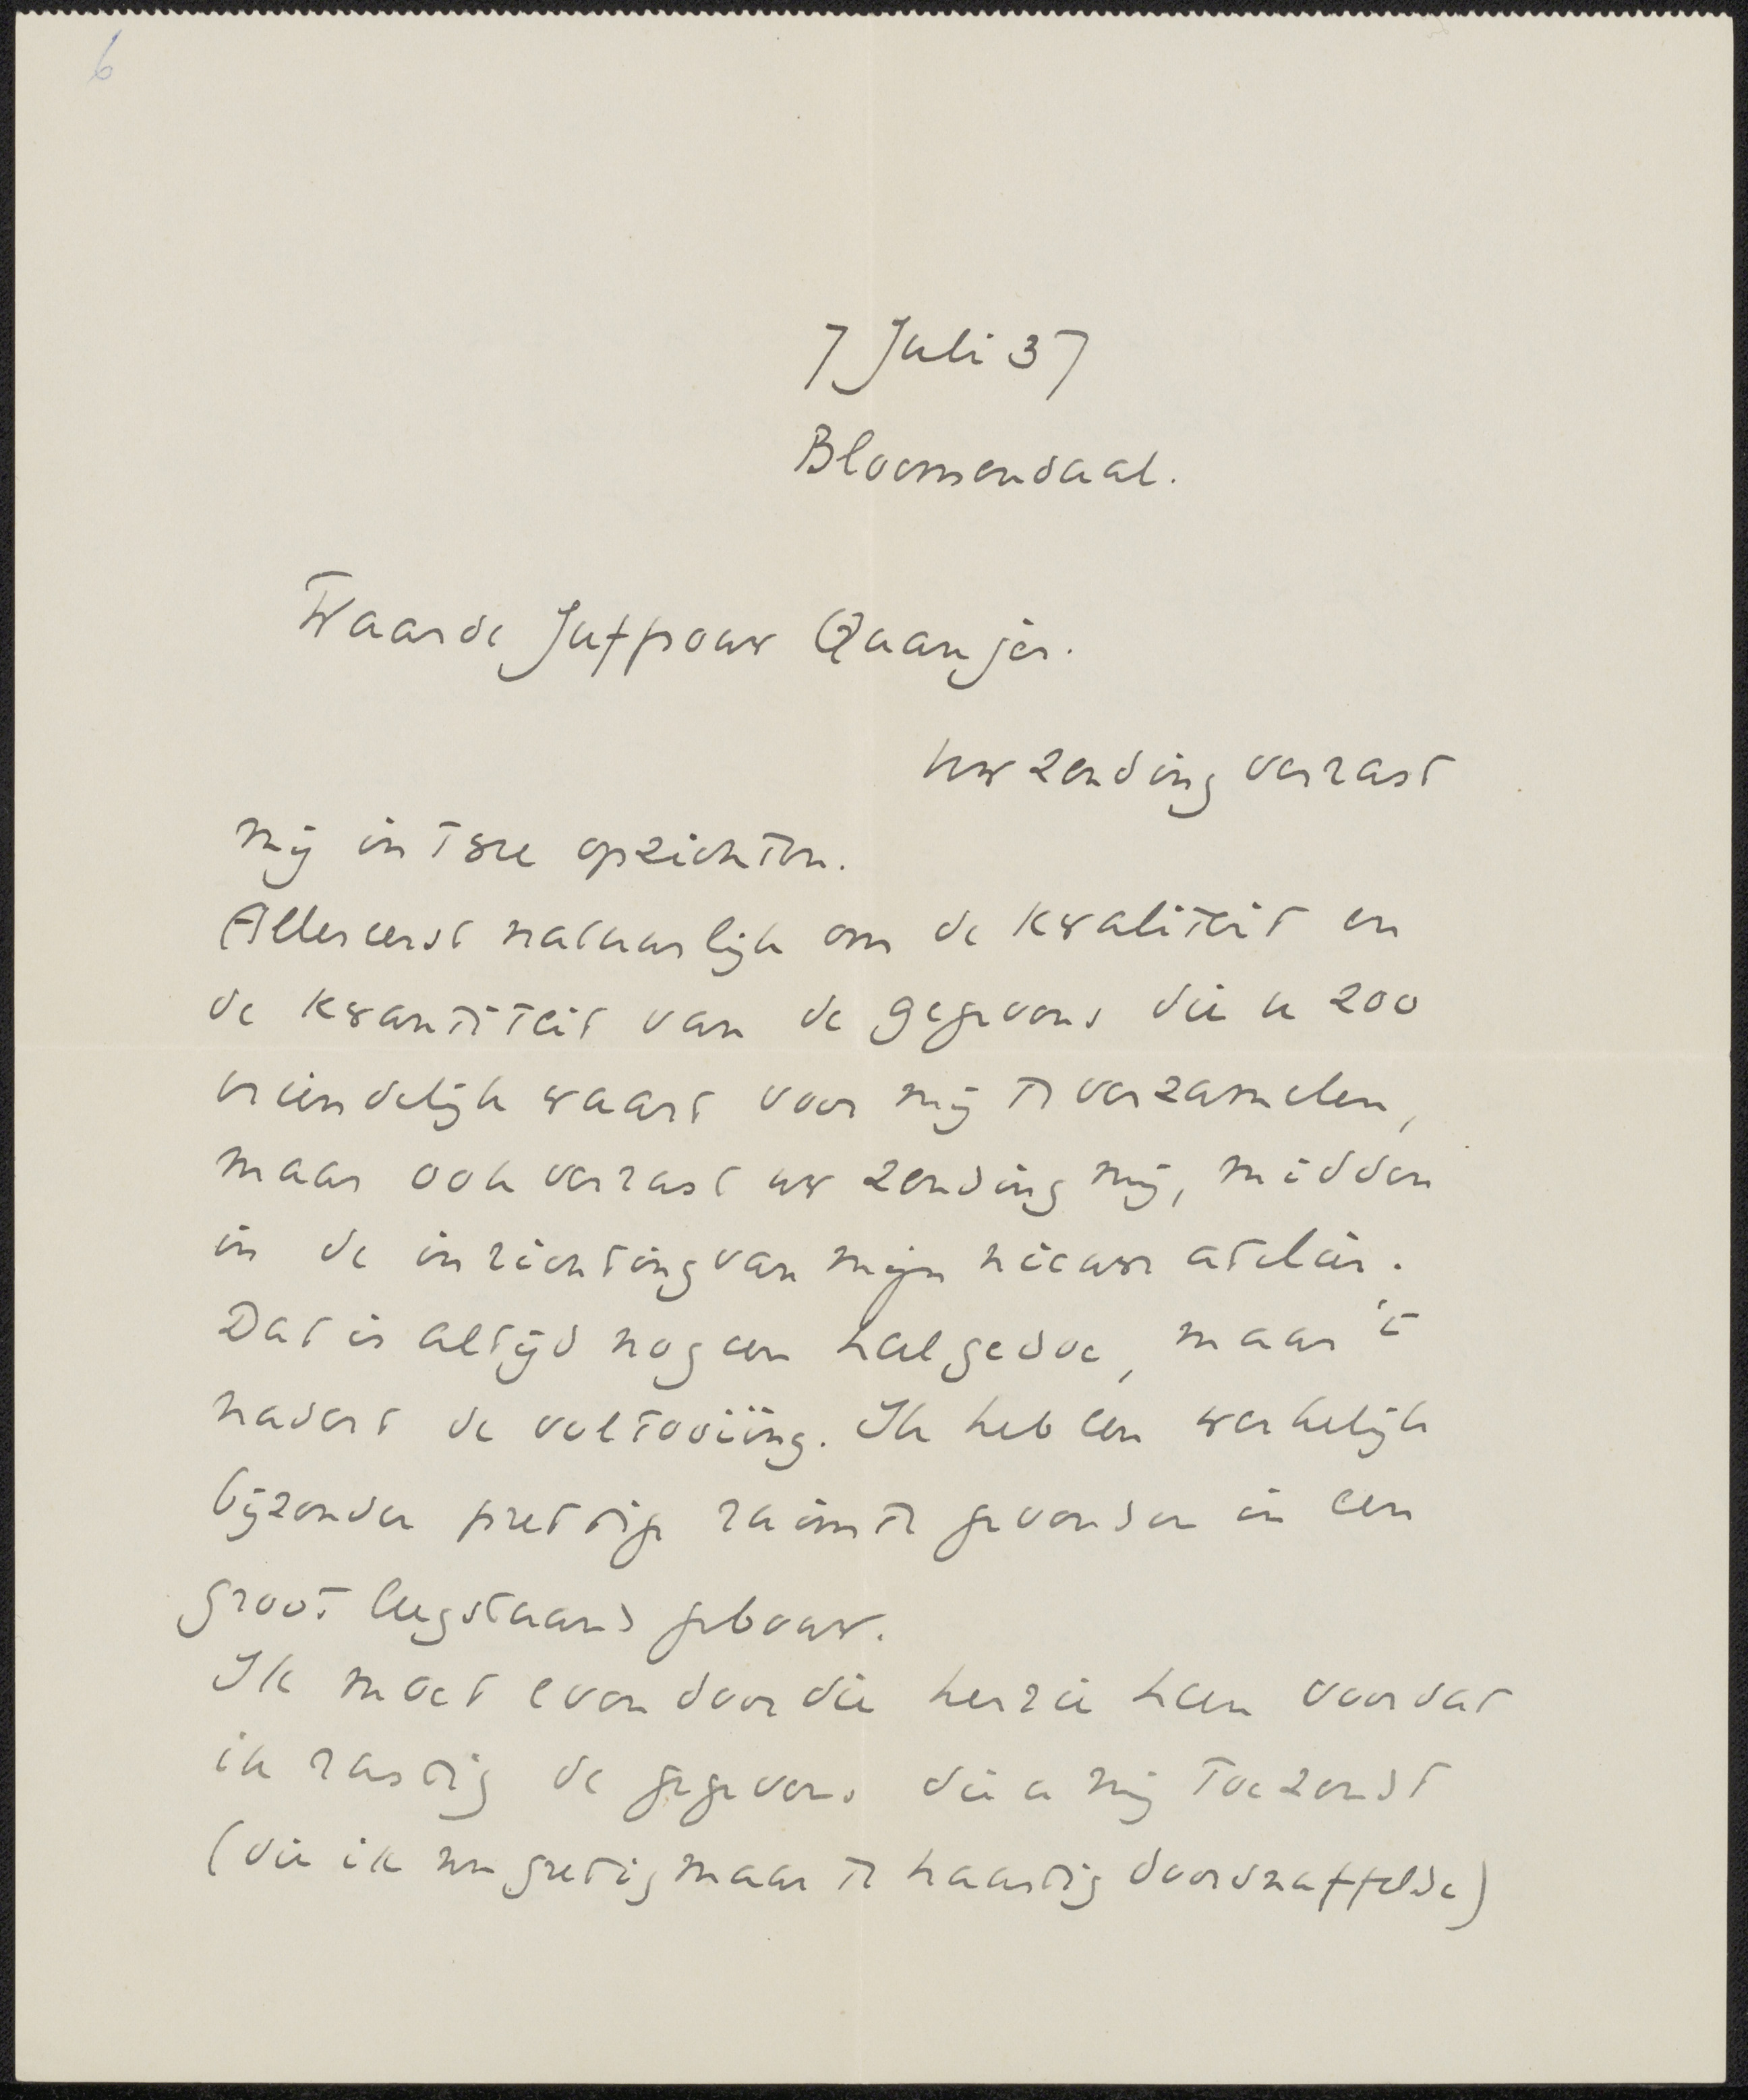 6
7 Juli 37
Bloemendaal.
Waarde Juffrouw Quanjer.
Uw zending verrast
mij in twee opzichten.
Allereerst natuurlijk om de kwaliteit en
de kwantiteit van de gegevens die u zoo
vriendelijk waart voor mij te verzamelen,
maar ook verrast uw zending mij, midden
in de inrichting van mijn nieuwe atelier.
Dat is altijd nog een heel gedoe, maar 't
nadert de voltooiïng. Ik heb een werkelijk
bijzonder prettige ruimte gevonden in een
groot leegstaand gebouw.
Ik moet even door die herrie heen voordat
ik rustig de gegevens die u mij toezendt
(die ik nu gretig maar te haastig doorsnuffelde)